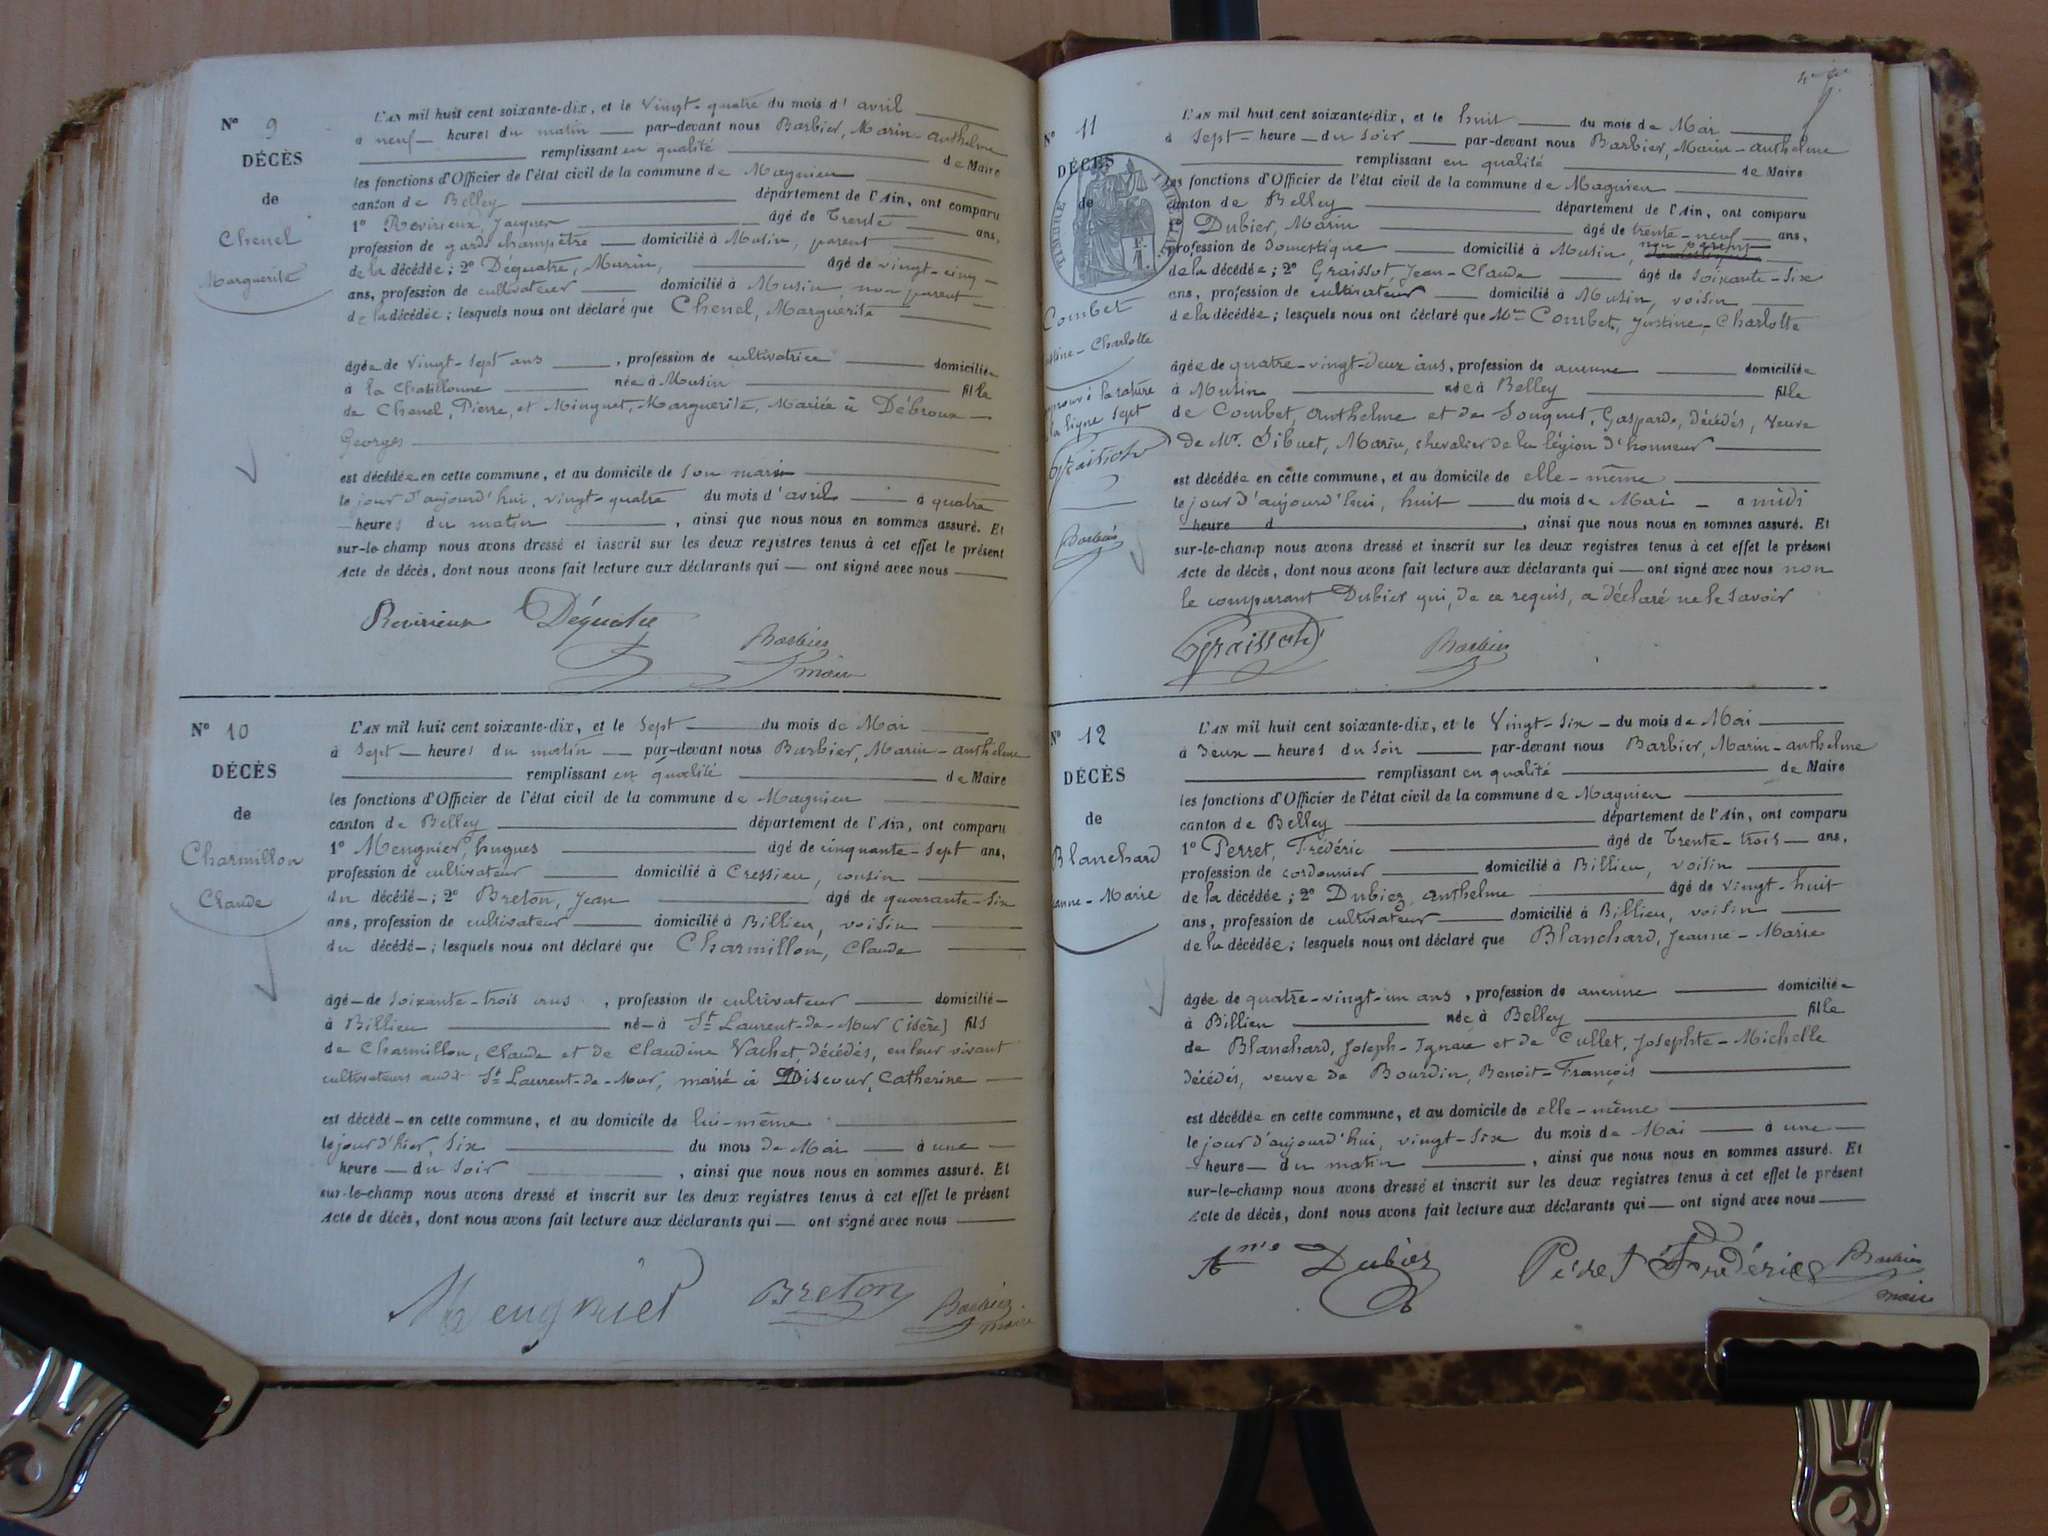 N° 9
DÉCÈS
de
Chenel
Marguerite
L'AN mil huit cent soixante-dix, et le vingt-quatre du mois d'avril
à neuf heures du matin par-devant nous Barbier, Marin-anthelme
remplissant en qualité de Maire
les fonctions d'Officier de l'état civil de la commune de Magnieu
canton de Belley département de l'Ain, ont comparu
1° Revirieux, Jacques âgé de Trente ans,
profession de garde champêtre domicilié à Musin, parent
de la décédée ; 2° Déquatre, Marin, âgé de vingt-cinq
ans, profession de cultivateur domicilié à Musin, non parent
de la décédée ; lesquels nous ont déclaré que Chenel, Marguerite
âgée de vingt-sept ans, profession de cultivatrice domiciliée
à la née à Musin fille
de Chenel, Pierre, et Minguet, Marguerite, Mariée à Débroux
Georges
est décédée en cette commune, et au domicile de son mari
le jour d'aujourd'hui, vingt-quatre du mois d'avril à quatre
heures du matin, ainsi que nous nous en sommes assuré. Et
sur-le-champ nous avons dressé et inscrit sur les deux registres tenus à cet effet le présent
Acte de décès, dont nous avons fait lecture aux déclarants qui ont signé avec nous
Revirieux Déquatre
Barbier
maire
N° 10
DÉCÈS
de
Charmillon
Claude
L'AN mil huit cent soixante-dix, et le sept du mois de Mai
à sept heures du matin par-devant nous Barbier, Marin-anthelme
remplissant en qualité de Maire
les fonctions d'Officier de l'état civil de la commune de Magnieu
canton de Belley département de l'Ain, ont comparu
1° Meugnier, hugues âgé de cinquante-sept ans,
profession de cultivateur domicilié à Cressieu, cousin
du décédé ; 2° Breton, Jean âgé de quarante-six
ans, profession de cultivateur domicilié à Billieu, voisin
du décédé ; lesquels nous ont déclaré que Charmillon, Claude
âgé de soixante-trois ans, profession de cultivateur domicilié
à Billieu né à St Laurent-de-Mur (isère) fils
de Charmillon, Claude et de Claudine Vachet, décédés, en leur vivant
cultivateurs audit St Laurent-de-Mur, marié à Discour, Catherine
est décédé en cette commune, et au domicile de lui-même
le jour d'hier, six du mois de Mai à une
heure du soir, ainsi que nous nous en sommes assuré. Et
sur-le-champ nous avons dressé et inscrit sur les deux registres tenus à cet effet le présent
Acte de décès, dont nous avons fait lecture aux déclarants qui ont signé avec nous
Meugnier Breton Barbier
maire
N° 11
DÉCÈS
de
TIMBRE IMPERIAL
Combet
Justine-Charlotte
approuvé la rature
à la ligne sept
Graissot
Barbier
L'AN mil huit cent soixante-dix, et le huit du mois de Mai
à sept heure du soir par-devant nous Barbier, Marin-anthelme
remplissant en qualité de Maire
les fonctions d'Officier de l'état civil de la commune de Magnieu
canton de Belley département de l'Ain, ont comparu
1° Dubier, Marin âgé de trente-neuf ans,
profession de domestique domicilié à Musin, non parent
de la décédée ; 2° Graissot, Jean-Claude âgé de soixante-six
ans, profession de cultivateur domicilié à Musin, voisin
de la décédée ; lesquels nous ont déclaré que Me Combet, Justine-Charlotte
âgée de quatre-vingt-deux ans, profession de aucune domiciliée
à Musin née à Belley fille
de Combet, anthelme et de Souquet, Gasparde, décédés, veuve
de Mr. Sibuet, Marin, chevalier de la légion d'honneur
est décédée en cette commune, et au domicile de elle-même
le jour d'aujourd'hui, huit du mois de Mai à midi
heure d, ainsi que nous nous en sommes assuré. Et
sur-le-champ nous avons dressé et inscrit sur les deux registres tenus à cet effet le présent
Acte de décès, dont nous avons fait lecture aux déclarants qui ont signé avec nous non
le comparant Dubier qui, de ce requis, a déclaré ne le savoir
Graissot Barbier
N° 12
DÉCÈS
de
Blanchard
Jeanne-Marie
L'AN mil huit cent soixante-dix, et le vingt-six du mois de Mai
à deux heures du soir par-devant nous Barbier, Marin-anthelme
remplissant en qualité de Maire
les fonctions d'Officier de l'état civil de la commune de Magnieu
canton de Belley département de l'Ain, ont comparu
1° Perret, Frédéric âgé de Trente-trois ans,
profession de cordonnier domicilié à Billieu, voisin
de la décédée ; 2° Dubiez, anthelme âgé de vingt-huit
ans, profession de cultivateur domicilié à Billieu, voisin
de la décédée ; lesquels nous ont déclaré que Blanchard, Jeanne-Marie
âgée de quatre-vingt-un ans, profession de aucune domiciliée
à Billieu née à Belley fille
de Blanchard, Joseph-Ignace et de Cullet, Josephte-Michelle
décédés, veuve de Bourdin, Benoit-François
est décédée en cette commune, et au domicile de elle-même
le jour d'aujourd'hui, vingt-six du mois de Mai à une
heure du matin, ainsi que nous nous en sommes assuré. Et
sur-le-champ nous avons dressé et inscrit sur les deux registres tenus à cet effet le présent
Acte de décès, dont nous avons fait lecture aux déclarants qui ont signé avec nous
Ame Dubiez Péret Frédéric Barbier
maire